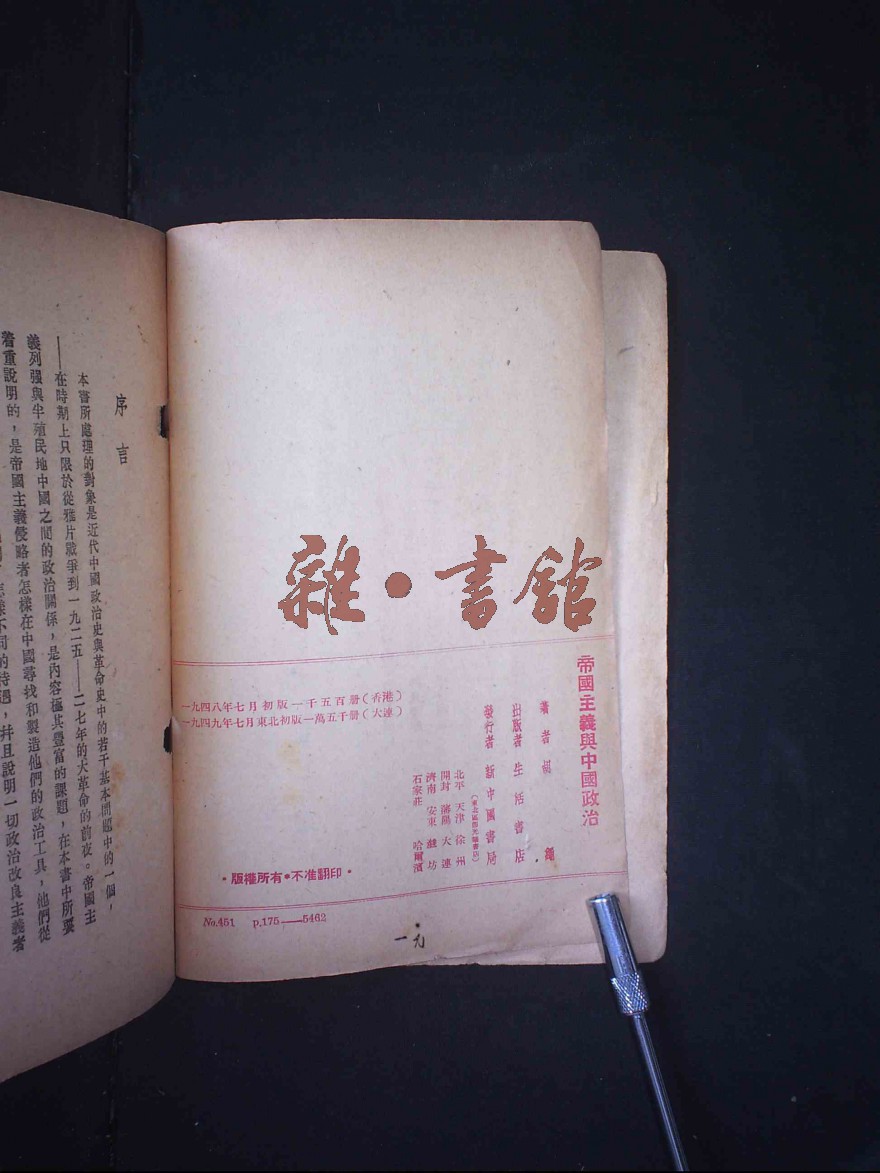 雜·書館
帝國主義與中國政治
著者 胡 繩
出版者 生活書店
發行者 新中國書局
(東北區照光華書店)
北平 天津 徐州
開封 瀋陽 大連
濟南 安東 濰坊
石家莊 哈爾濱
一九四八年七月初版一千五百册(香港)
一九四九年七月東北初版一萬五千册(大連)
·版權所有·不准翻印·
No.451 p.175——5462
一九
序言
本書所處理的對象是近代中國政治史與革命史中的若干基本問題中的一個,
——在時期上只限於從鴉片戰爭到一九二五——二七年的大革命的前夜。帝國主
義列强與半殖民地中國之間的政治關係,是內容極其豐富的課題,在本書中所要
着重說明的,是帝國主義侵略者怎樣在中國尋找和製造他們的政治工具,他們從
不同的待遇,并且說明一切政治改良主義者